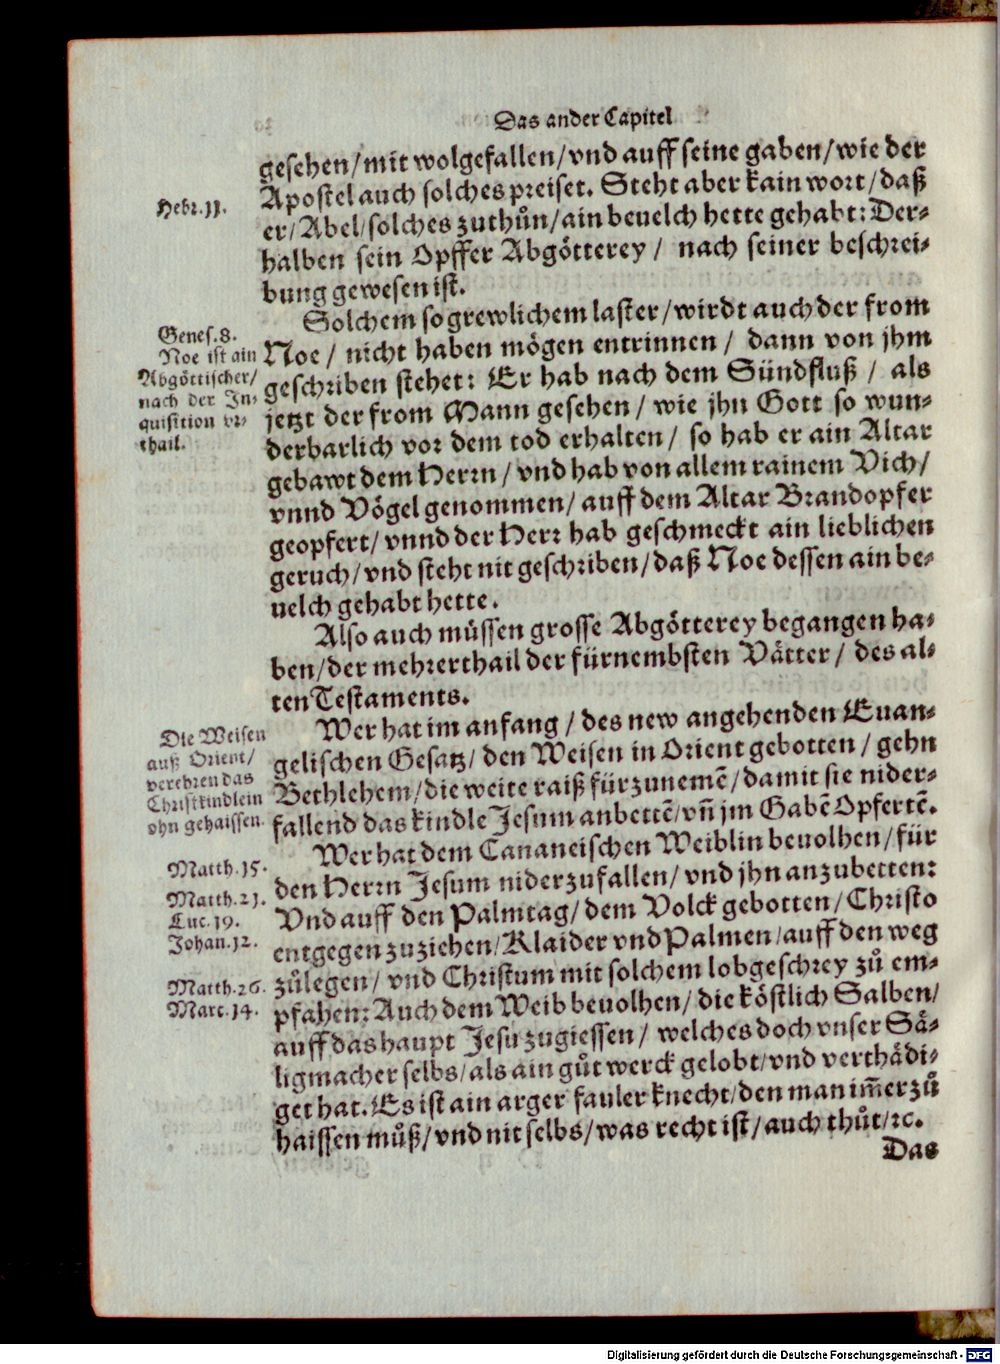 Das ander Capitel
gesehen/mit wolgefallen/vnd auff seine gaben/wie der
Apostel auch solches preiset. Steht aber kain wort/daß
Hebr. 11.
er/Abel/solches zuthůn/ain beuelch hette gehabt: Der-
halben sein Opffer Abgötterey/ nach seiner beschrei-
bung gewesen ist.
Solchem so grewlichem laster/wirdt auch der from
Genes. 8.
Noe ist ain
Abgöttischer/
nach der In-
quisition vr-
thail.
Noe/ nicht haben mögen entrinnen/ dann von jhm
geschriben stehet: Er hab nach dem Sündfluß/ als
jetzt der from Mann gesehen/ wie jhn Gott so wun-
derbarlich vor dem tod erhalten/ so hab er ain Altar
gebawt dem Herrn/ vnd hab von allem rainem Vich/
vnnd Vögel genommen/ auff dem Altar Brandopfer
geopfert/ vnnd der Herr hab geschmeckt ain lieblichen
geruch/vnd steht nit geschriben/daß Noe dessen ain be-
uelch gehabt hette.
Also auch müssen grosse Abgötterey begangen ha-
ben/der mehrerthail der fürnembsten Vätter/ des al-
ten Testaments.
Wer hat im anfang/ des new angehenden Euan-
Die Weisen
auß Orient/
verehren das
Christkindlein
ohn gehaissen.
gelischen Gesatz/ den Weisen in Orient gebotten/ gehn
Bethlehem/die weite raiß fürzunemẽ/damit sie nider-
fallend das kindle Jesum anbettẽ/vñ jm Gabẽ Opfertẽ.
Wer hat dem Cananeischen Weiblin beuolhen/ für
Matth. 15.
den Herrn Jesum niderzufallen/ vnd jhn anzubetten:
Matth. 21.
Luc. 19.
Johan. 12.
Vnd auff den Palmtag/ dem Volck gebotten/ Christo
entgegen zuziehen/Klaider vnd Palmen/auff den weg
zůlegen/ vnd Christum mit solchem lobgeschrey zů em-
Matth. 26.
Marc. 14.
pfahen: Auch dem Weib beuolhen/ die köstlich Salben/
auff das haupt Jesu zugiessen/ welches doch vnser Sä-
ligmacher selbs/als ain gůt werck gelobt/vnd verthädi-
get hat. Es ist ain arger fauler knecht/den man im̃er zů
haissen můß/vnd nit selbs/was recht ist/auch thůt/ꝛc.
Das
Digitalisierung gefördert durch die Deutsche Forschungsgemeinschaft - DFG